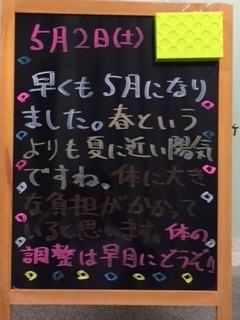 5月2日(土)
早くも5月になり
ました。春という
よりも夏に近い陽気
ですね。体に大き
な負担がかかって
いると思います。体の
調整は早目にどうぞ!